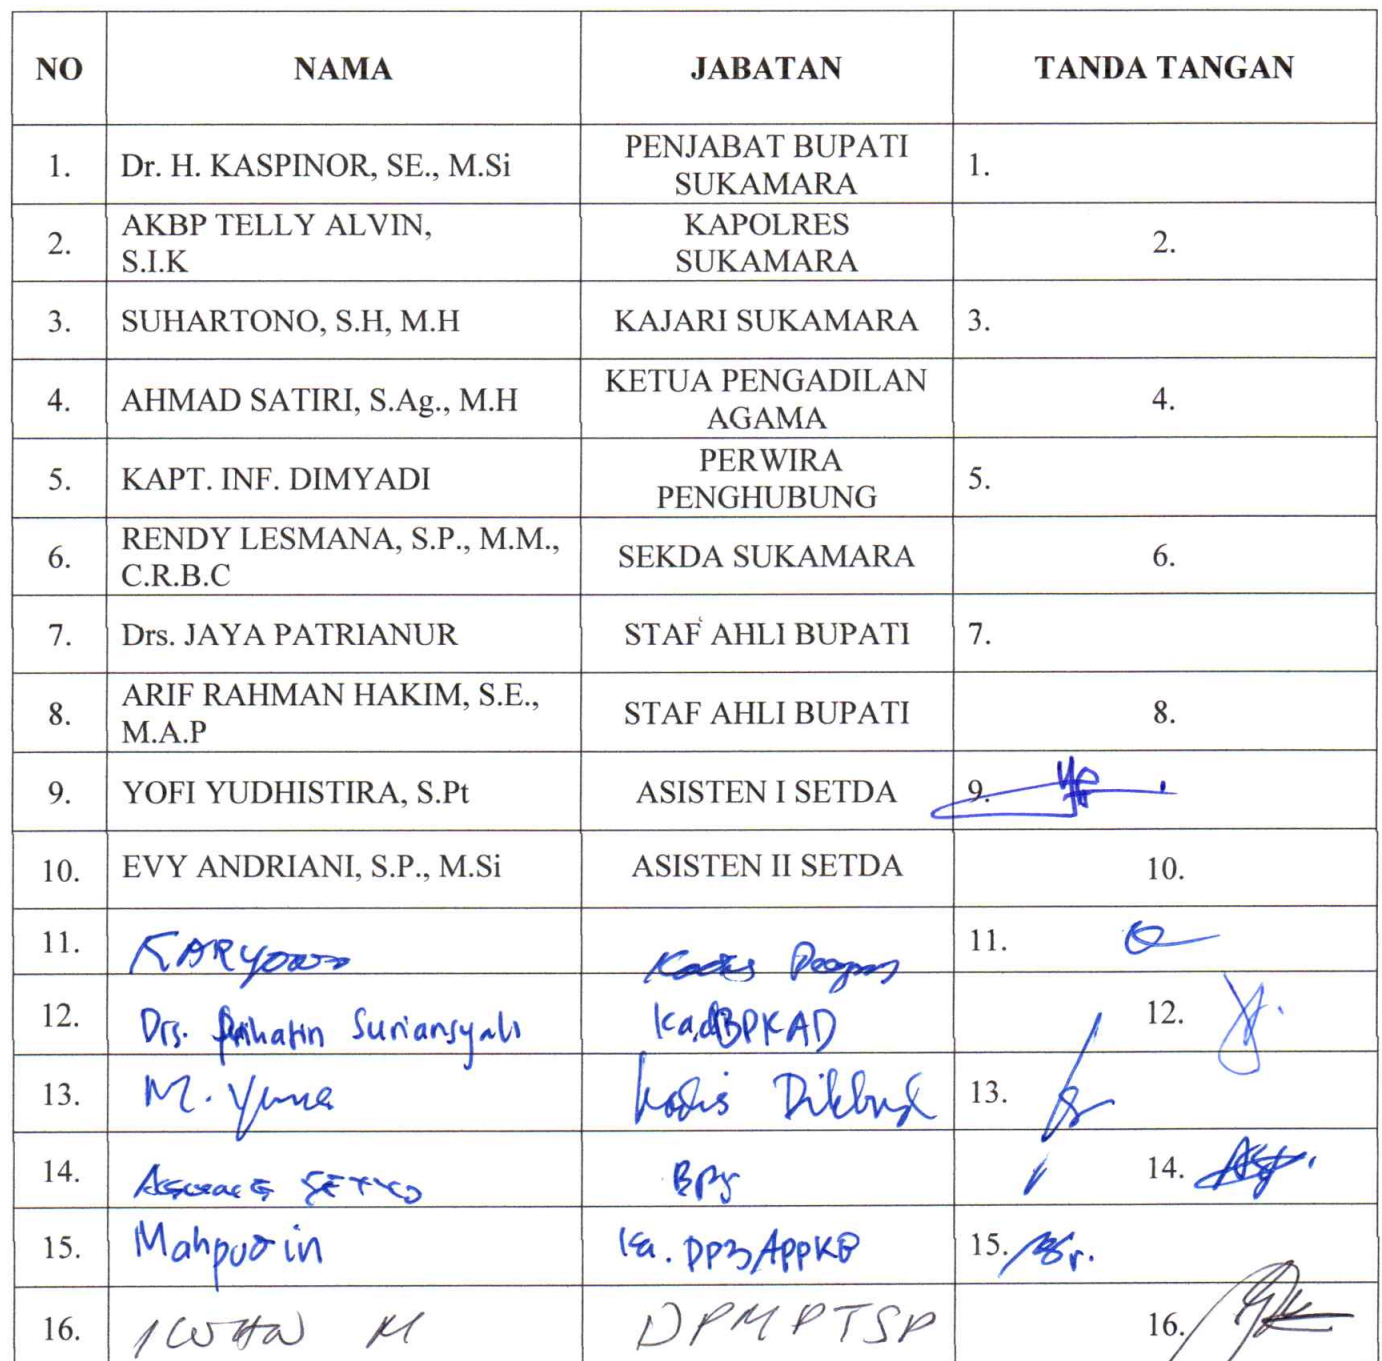 NO NAMA JABATAN TANDA TANGAN
1. Dr. H. KASPINOR, SE., M.Si PENJABAT BUPATI SUKAMARA 1.
2. AKBP TELLY ALVIN, S.I.K KAPOLRES SUKAMARA 2.
3. SUHARTONO, S.H, M.H KAJARI SUKAMARA 3.
4. AHMAD SATIRI, S.Ag., M.H KETUA PENGADILAN AGAMA 4.
5. KAPT. INF. DIMYADI PERWIRA PENGHUBUNG 5.
6. RENDY LESMANA, S.P., M.M., C.R.B.C SEKDA SUKAMARA 6.
7. Drs. JAYA PATRIANUR STAF AHLI BUPATI 7.
8. ARIF RAHMAN HAKIM, S.E., M.A.P STAF AHLI BUPATI 8.
9. YOFI YUDHISTIRA, S.Pt ASISTEN I SETDA 9.
10. EVY ANDRIANI, S.P., M.Si ASISTEN II SETDA 10.
11. KARYONO 11.
12. Drs. Prihatin Suriansyah BPKAD 12.
13. M. Kadis Dikbud 13.
14. SETYO BPS 14.
15. Mahpudin Ka. DP3APPKB 15.
16. M DPMPTSP 16.